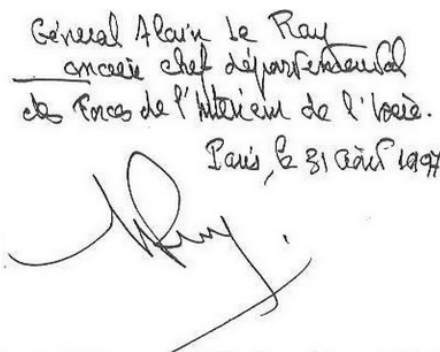 Général Alain Le Ray
ancien chef départemental
des Forces de l'Intérieur de l'Isère.
Paris, le 31 août 1997